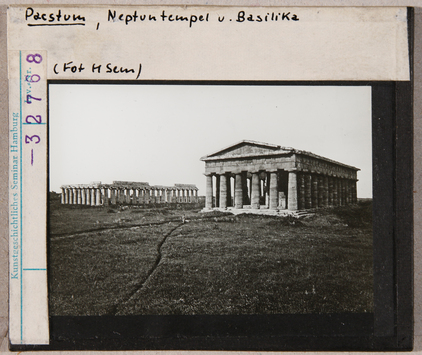 Paestum, Neptuntempel u. Basilika
(Fot M Sem)
Kunstgeschichtliches Seminar Hamburg
Inv.-Nr.
32768